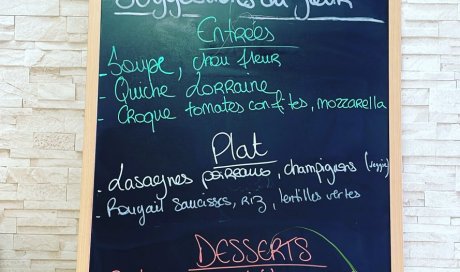 Suggestions du jour
Entrées
- Soupe, chou fleur
- Quiche Lorraine
- Croque tomates confites, mozzarella
Plat
- Lasagnes poireaux, champignons (veggie)
- Rougail saucisses, riz, lentilles vertes
DESSERTS